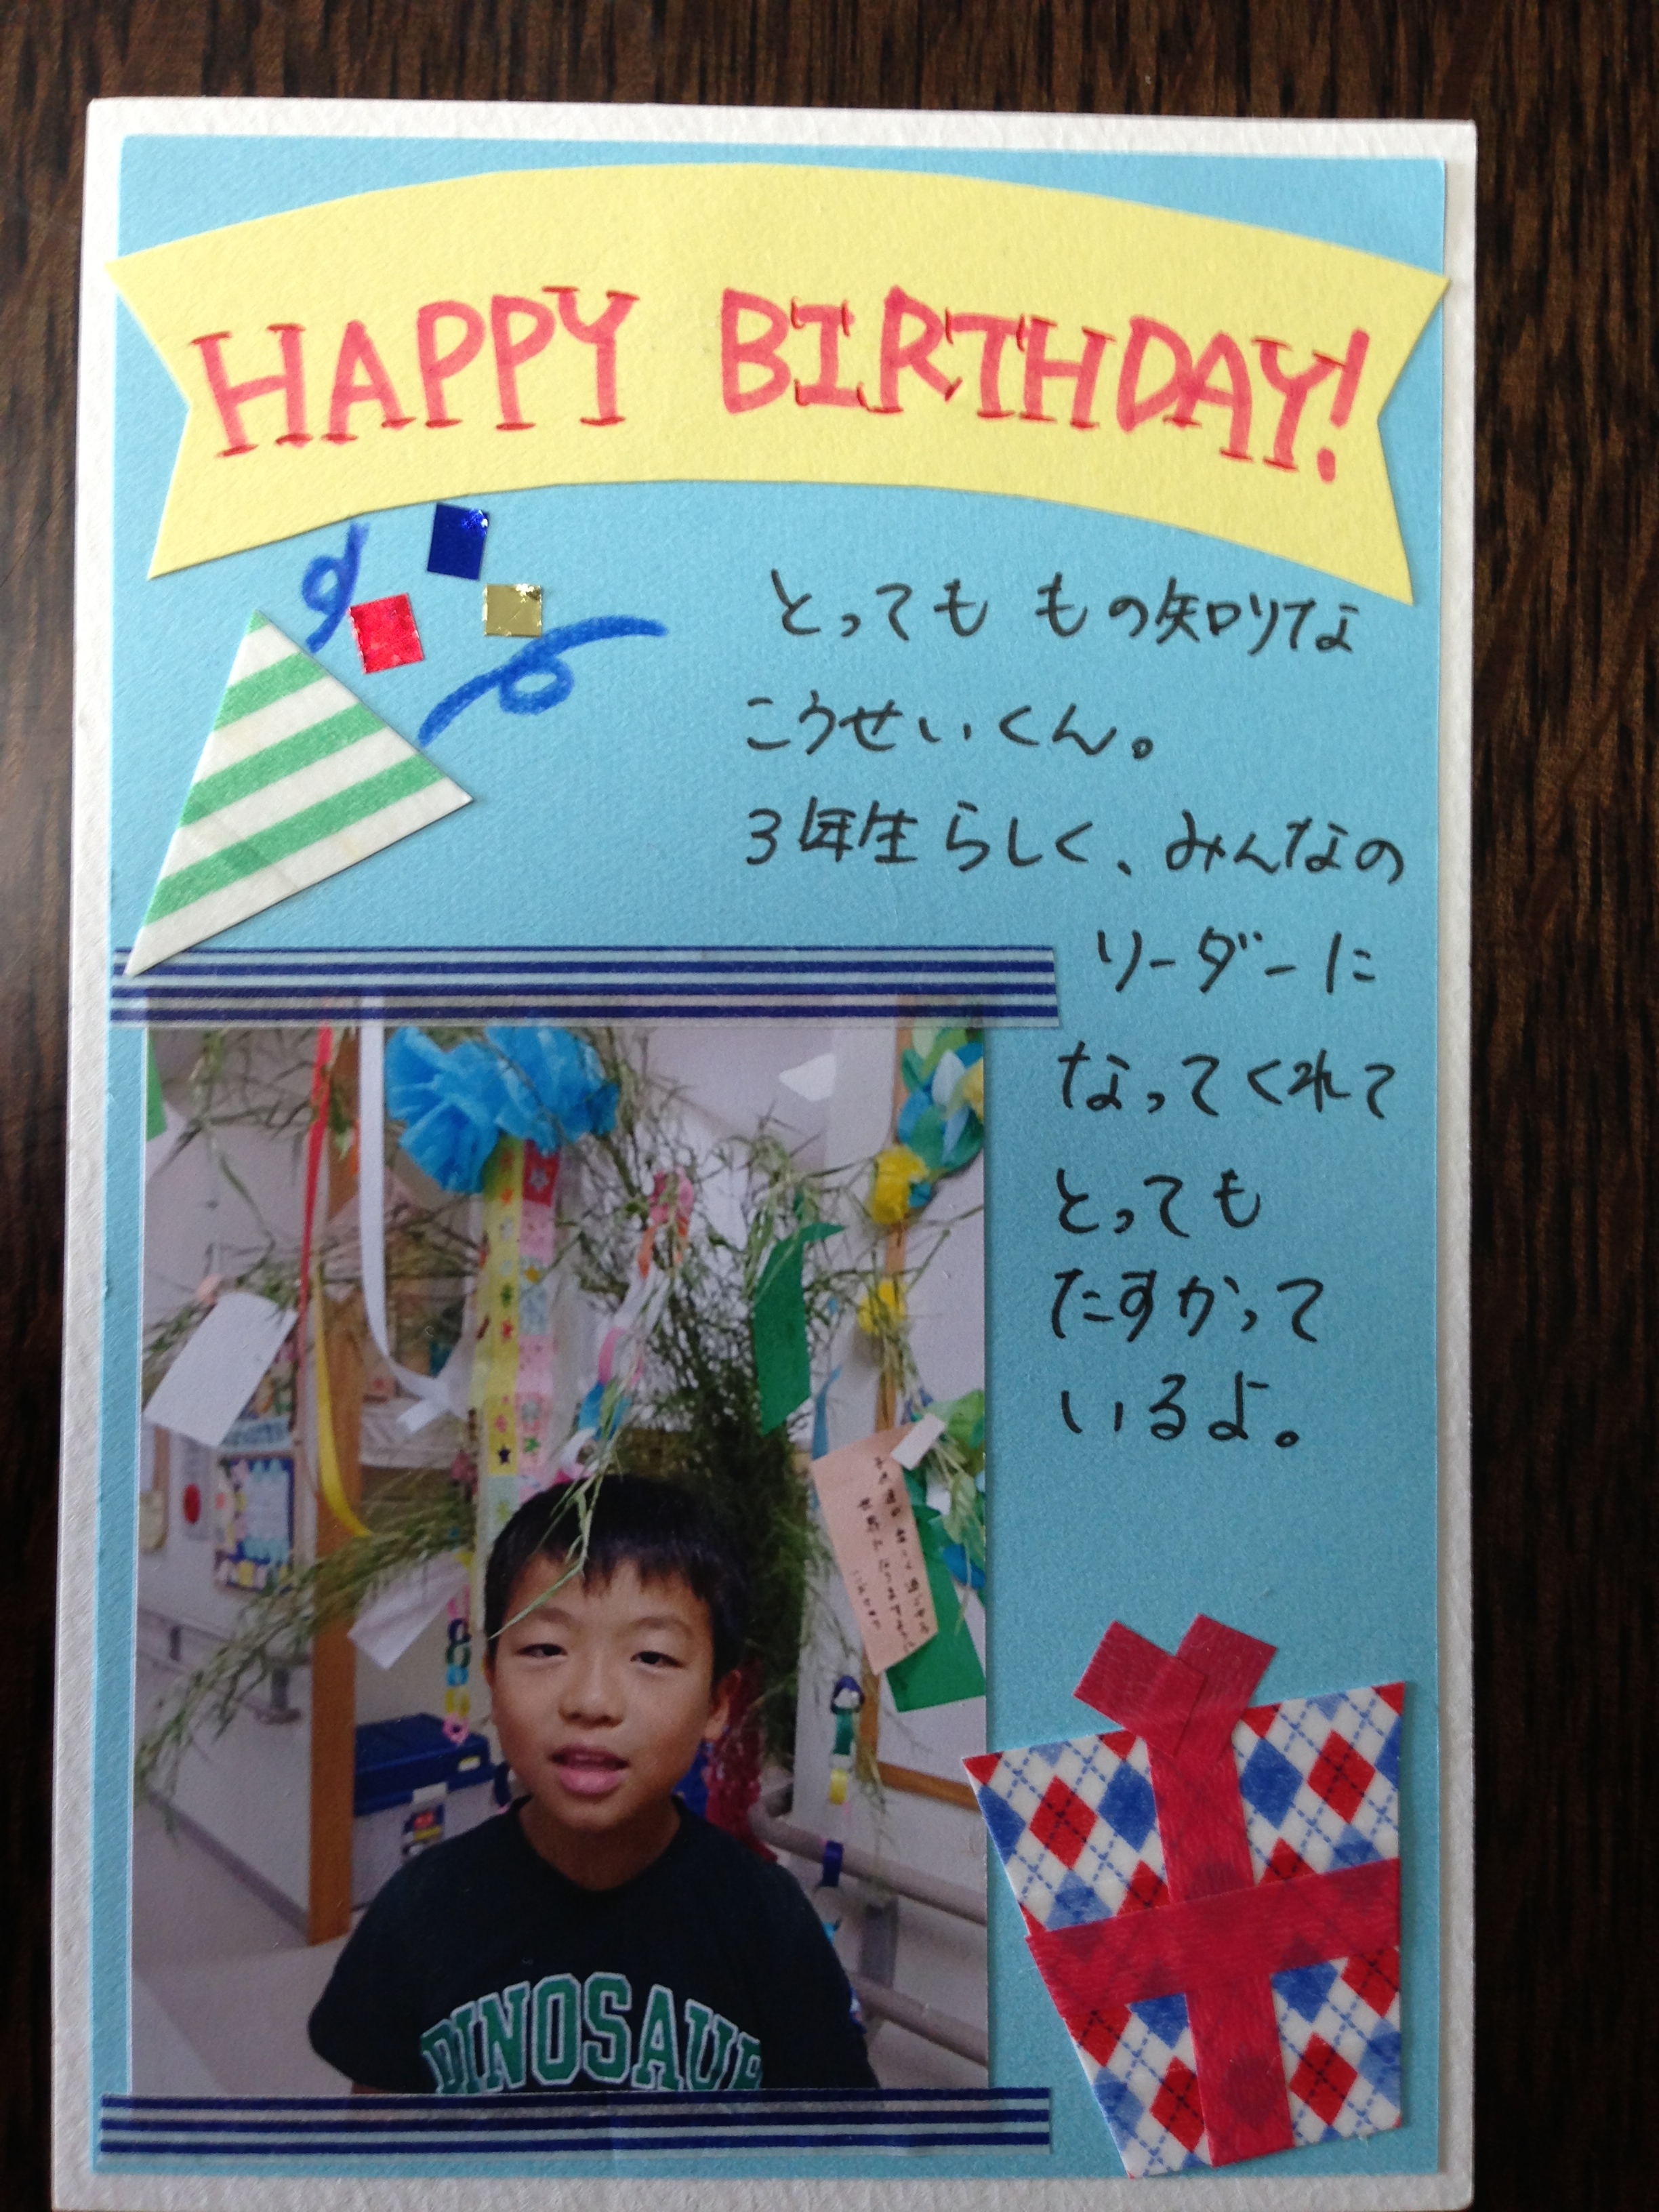 HAPPY BIRTHDAY!
とっても もの知りな
こうせいくん。
3年生らしく、みんなの
リーダーに
なってくれて
とっても
たすかって
いるよ。
DINOSAUR